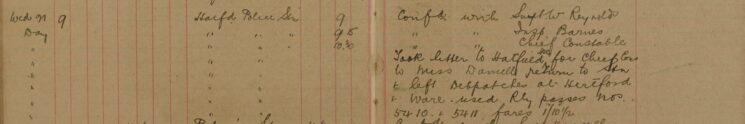 Wed 21 9 Hatfd Police Stn 9 Confce with Supt W Reynolds
Day " " " 9 15 " " Insp. Barnes
" " " " 10.30 " " Chief Constable
" " " " Took letter to Hatfield for Chief Cons
" " " " to Miss Daniells return to Stn
" " " " & left Despatches at Hertford
" " " " & Ware. used Rly passes nos.
" " " " 5410. & 5411 fares 1/10½